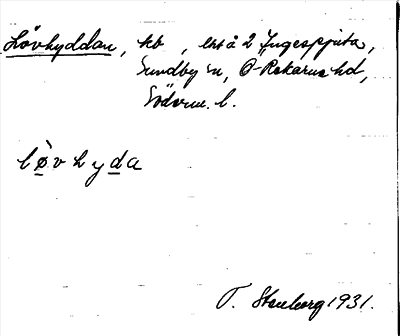 Lövhyddan, tcb, lht å 2 Jngespjuta,
Sundby sn, Ö-Rekarne hd,
Söderm. l.
løvhyda
T. Stenborg 1931.